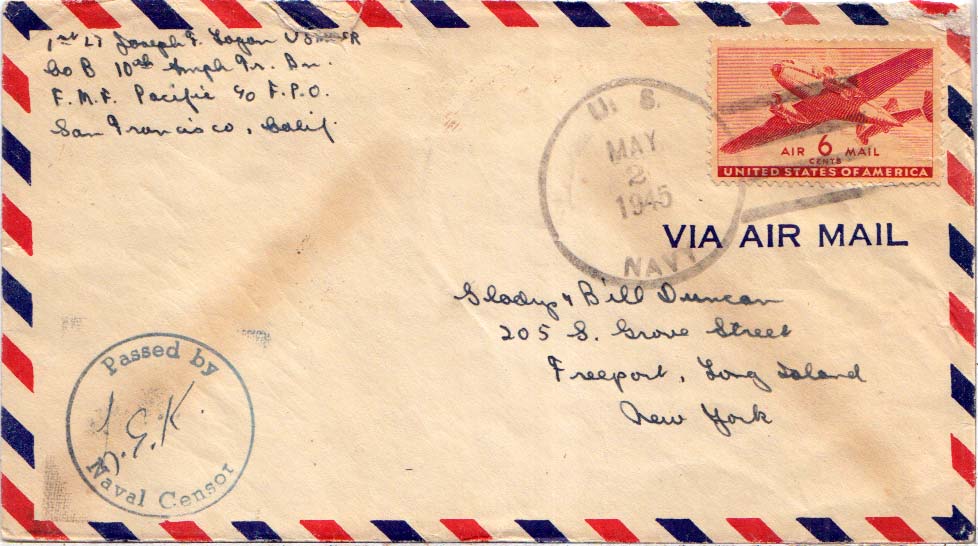 1st Lt Joseph F. Logan USMCR
Co B 10th Amph Tr. Bn.
F.M.F. Pacific c/o F.P.O.
San Francisco, Calif.
U. S.
MAY
2
1945
NAVY
AIR 6 MAIL
CENTS
UNITED STATES OF AMERICA
VIA AIR MAIL
Gladys & Bill Duncan
205 S. Grove Street
Freeport, Long Island
New York
Passed by
J.G.K.
Naval Censor